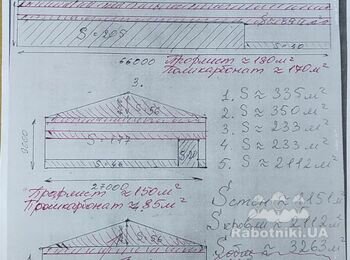 S = 205
S = 40
66000
Профлист ≈ 180м²
Поликарбонат ≈ 170м²
3.
S = 56
S = 177
9000
27000
Профлист ≈ 150м²
Поликарбонат ≈ 85м²
1. S ≈ 335м²
2. S ≈ 350м²
3. S ≈ 233м²
4. S ≈ 233м²
5. S ≈ 2112м²
S стен ≈ 1151м²
S кровли ≈ 2112м²
S общ ≈ 3263м²
S = 56
Rabotniki.UA